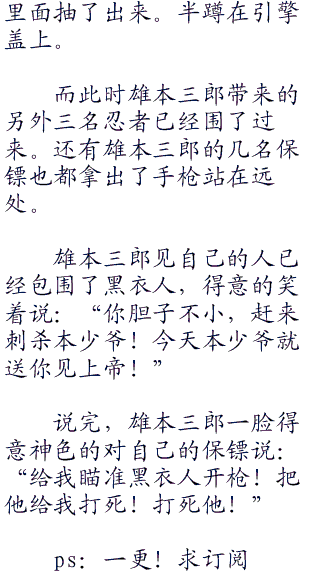 里面抽了出来。半蹲在引擎
盖上。
而此时雄本三郎带来的
另外三名忍者已经围了过
来。还有雄本三郎的几名保
镖也都拿出了手枪站在远
处。
雄本三郎见自己的人已
经包围了黑衣人，得意的笑
着说：“你胆子不小，赶来
刺杀本少爷！今天本少爷就
送你见上帝！”
说完，雄本三郎一脸得
意神色的对自己的保镖说：
“给我瞄准黑衣人开枪！把
他给我打死！打死他！”
ps：一更！求订阅